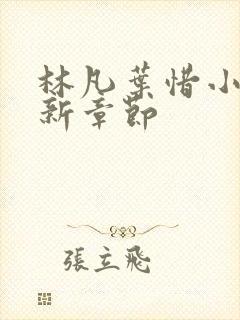 林凡葉惜小
新章節
張立飛